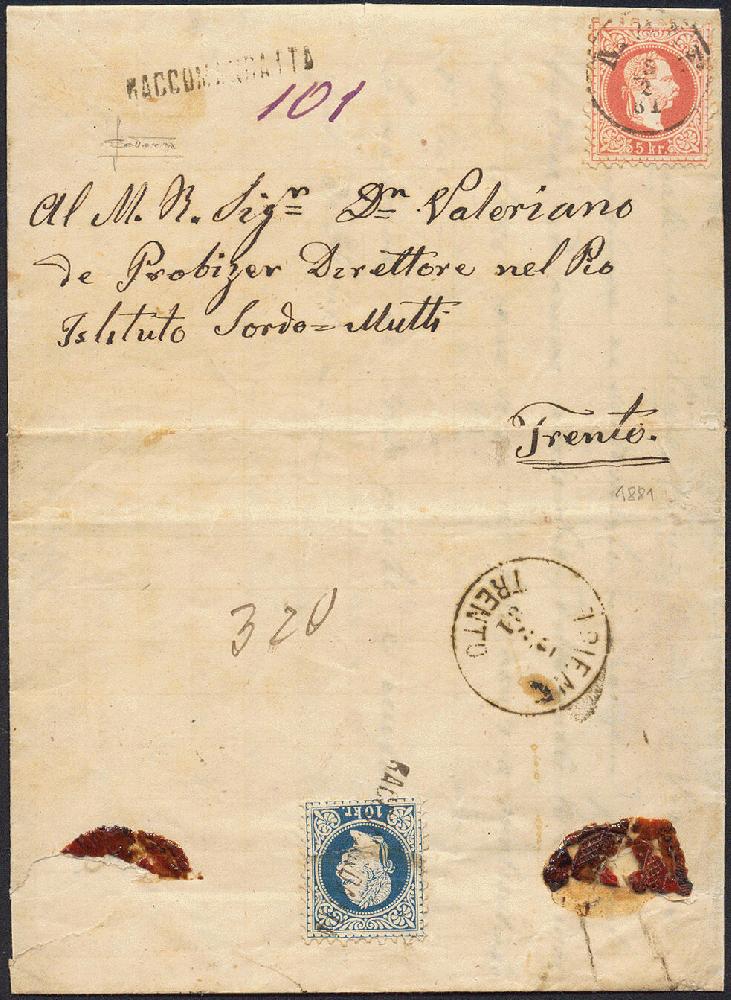 RACCOMANDATTA
101
5 kr.
Al M. R. Sigⁿ Dⁿ Valeriano
de Probizer Direttore nel Pio
Istituto Sordo=Mutti
Trento.
1881
TRENTO
81
320
10 kr.